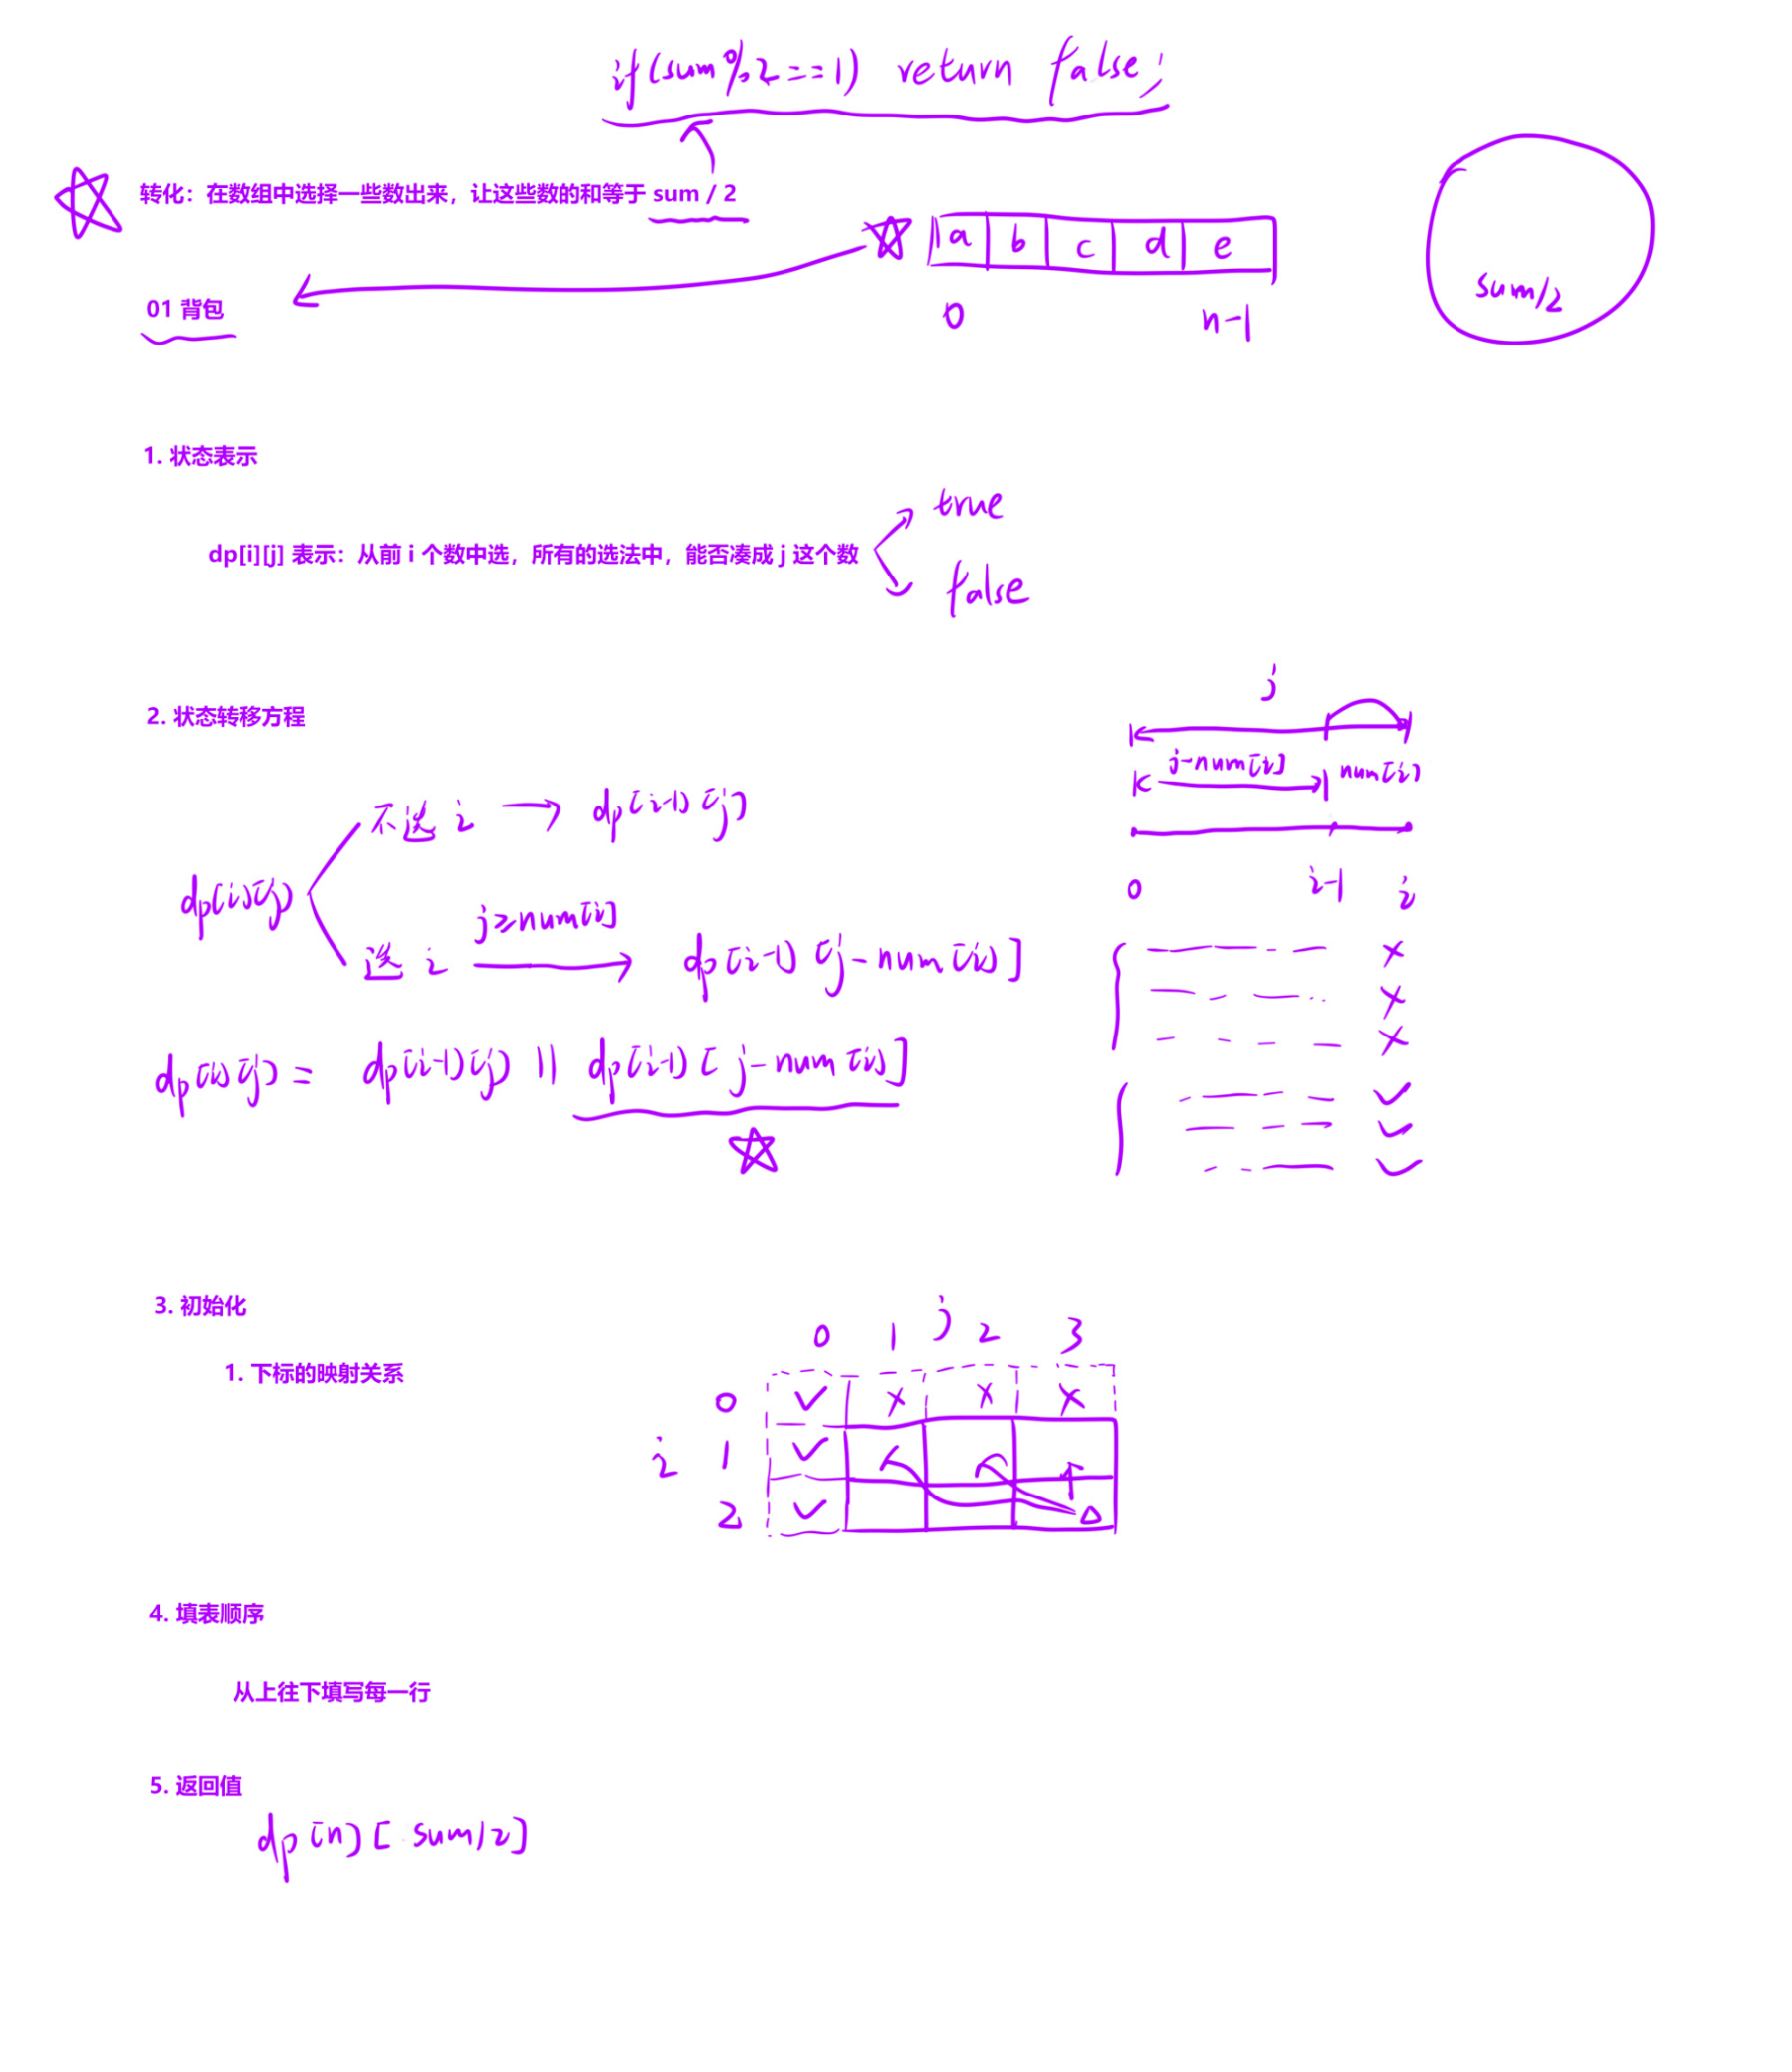 if(sum%2==1) return false;
转化：在数组中选择一些数出来，让这些数的和等于 sum / 2
a b c d e
0 n-1
sum/2
01 背包
1. 状态表示
true
dp[i][j] 表示：从前 i 个数中选，所有的选法中，能否凑成 j 这个数
false
2. 状态转移方程
j
j-num[i] num[i]
0 i-1 i
不选 i → dp[i-1][j]
dp[i][j]
j≥num[i]
选 i → dp[i-1][j-num[i]]
dp[i][j] = dp[i-1][j] || dp[i-1][j-num[i]]
3. 初始化
1. 下标的映射关系
j
0 1 2 3
0 ✓ × × ×
i 1 ✓
2 ✓
4. 填表顺序
从上往下填写每一行
5. 返回值
dp[n][sum/2]